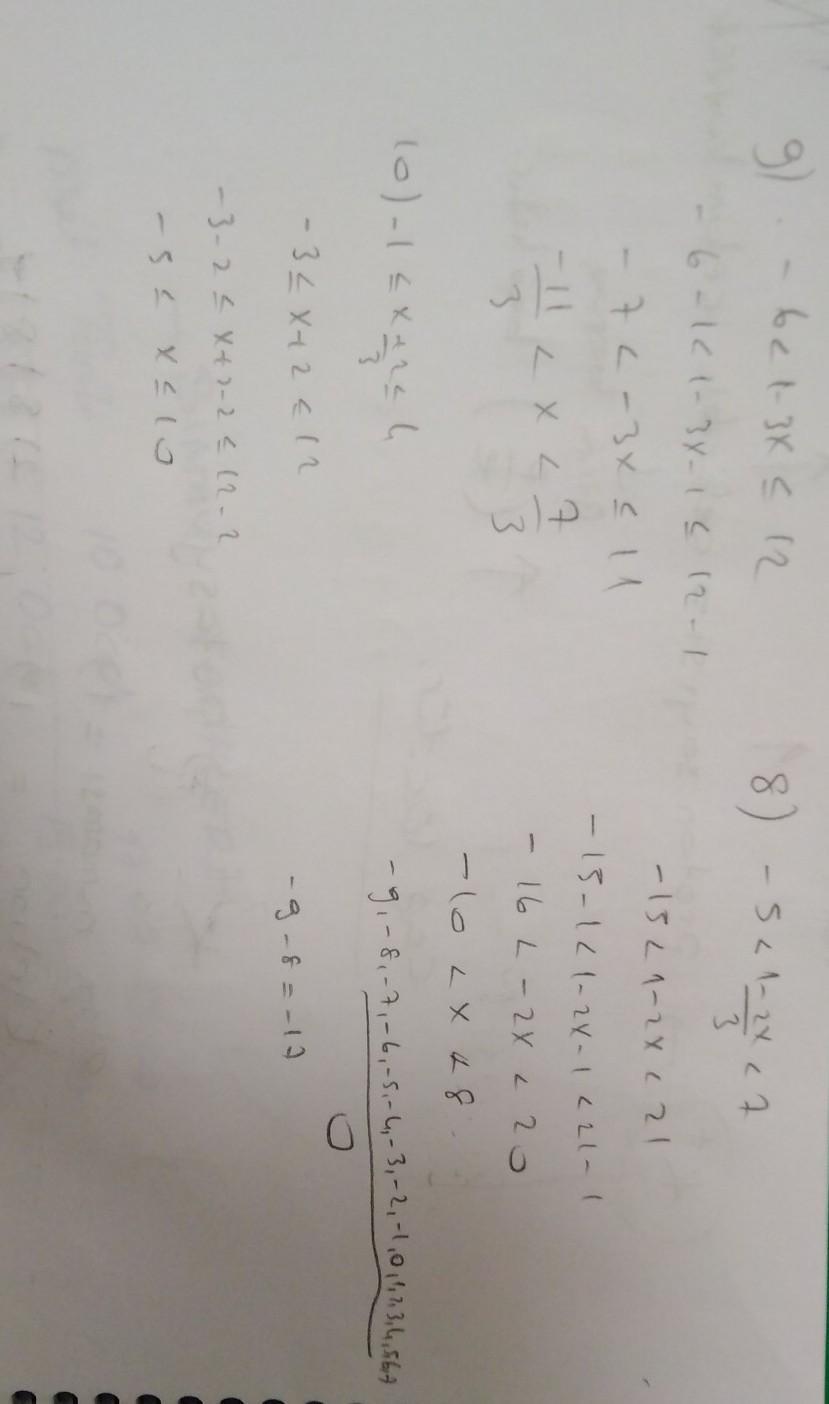 9) - 6 < 1 - 3x ≤ 12
- 6 - 1 < 1 - 3x - 1 ≤ 12 - 1
- 7 < - 3x ≤ 11
-11/3 < x < 7/3
10) - 1 ≤ x+2/3 ≤ 4
- 3 ≤ x + 2 ≤ 12
- 3 - 2 ≤ x + 2 - 2 ≤ 12 - 2
- 5 ≤ x ≤ 10
8) - 5 < 1-2x/3 < 7
- 15 < 1 - 2x < 21
- 15 - 1 < 1 - 2x - 1 < 21 - 1
- 16 < - 2x < 20
- 10 < x < 8
- 9, - 8, - 7, - 6, - 5, - 4, - 3, - 2, - 1, 0, 1, 2, 3, 4, 5 6, 7
0
- 9 - 8 = - 17